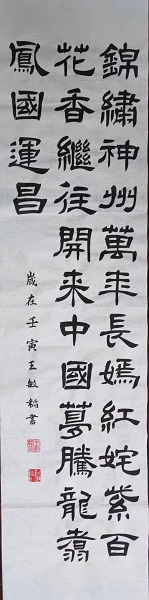 錦繡神州萬年長嫣紅姹紫百
花香繼往開来中國夢騰龍翥
鳳國運昌
歲在壬寅王敏韜書